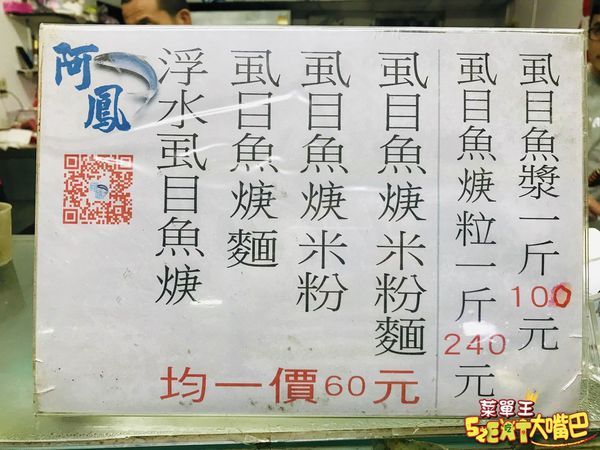 虱目魚漿一斤100元
虱目魚焿粒一斤240元
虱目魚焿米粉麵
虱目魚焿米粉
虱目魚焿麵
浮水虱目魚焿
均一價60元
阿鳳
菜單王
SZEXT大嘴巴